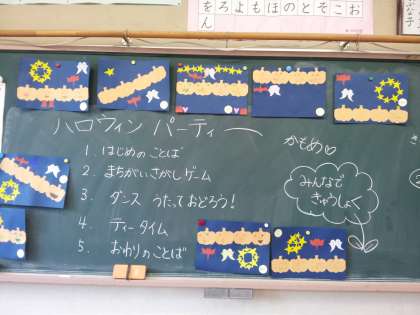 をろよもほのとそこお
ん
ハロウィン パーティー
1. はじめの ことば
2. まちがいさがしゲーム
3. ダンス うたっておどろう!
4. ティータイム
5. おわりのことば
かもめ♡
みんなで
きゅうしょく